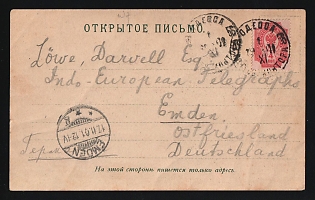 ОТКРЫТОЕ ПИСЬМО.
ОДЕССА
ОДЕССА
Löwe, Darvell Esq
Indo-European Telegraphs
Emden
Ostfriesland
Deutschland
EMDEN
17.11.01.12-1V
На этой стороне пишется только адресъ.